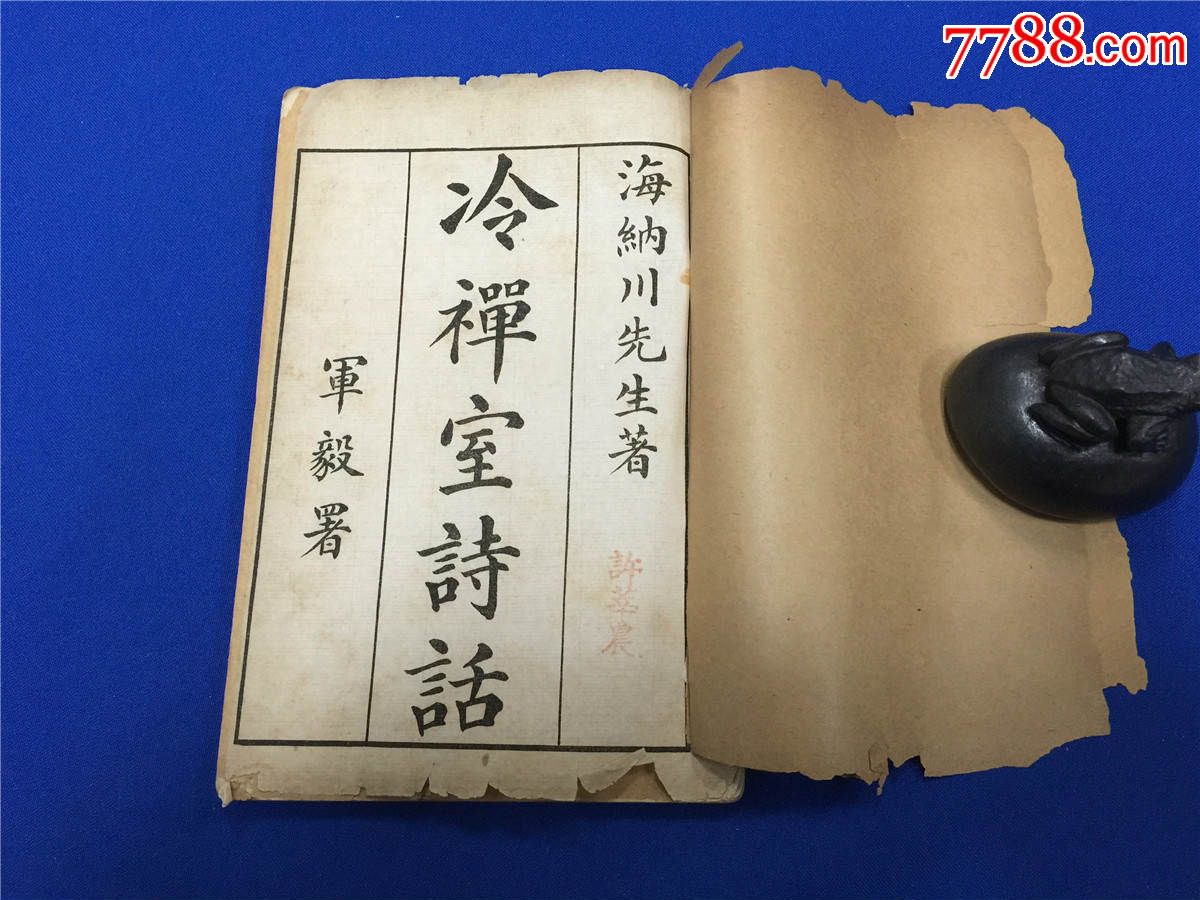 海納川先生著
冷禪室詩話
軍毅署
許莖農
7788.com